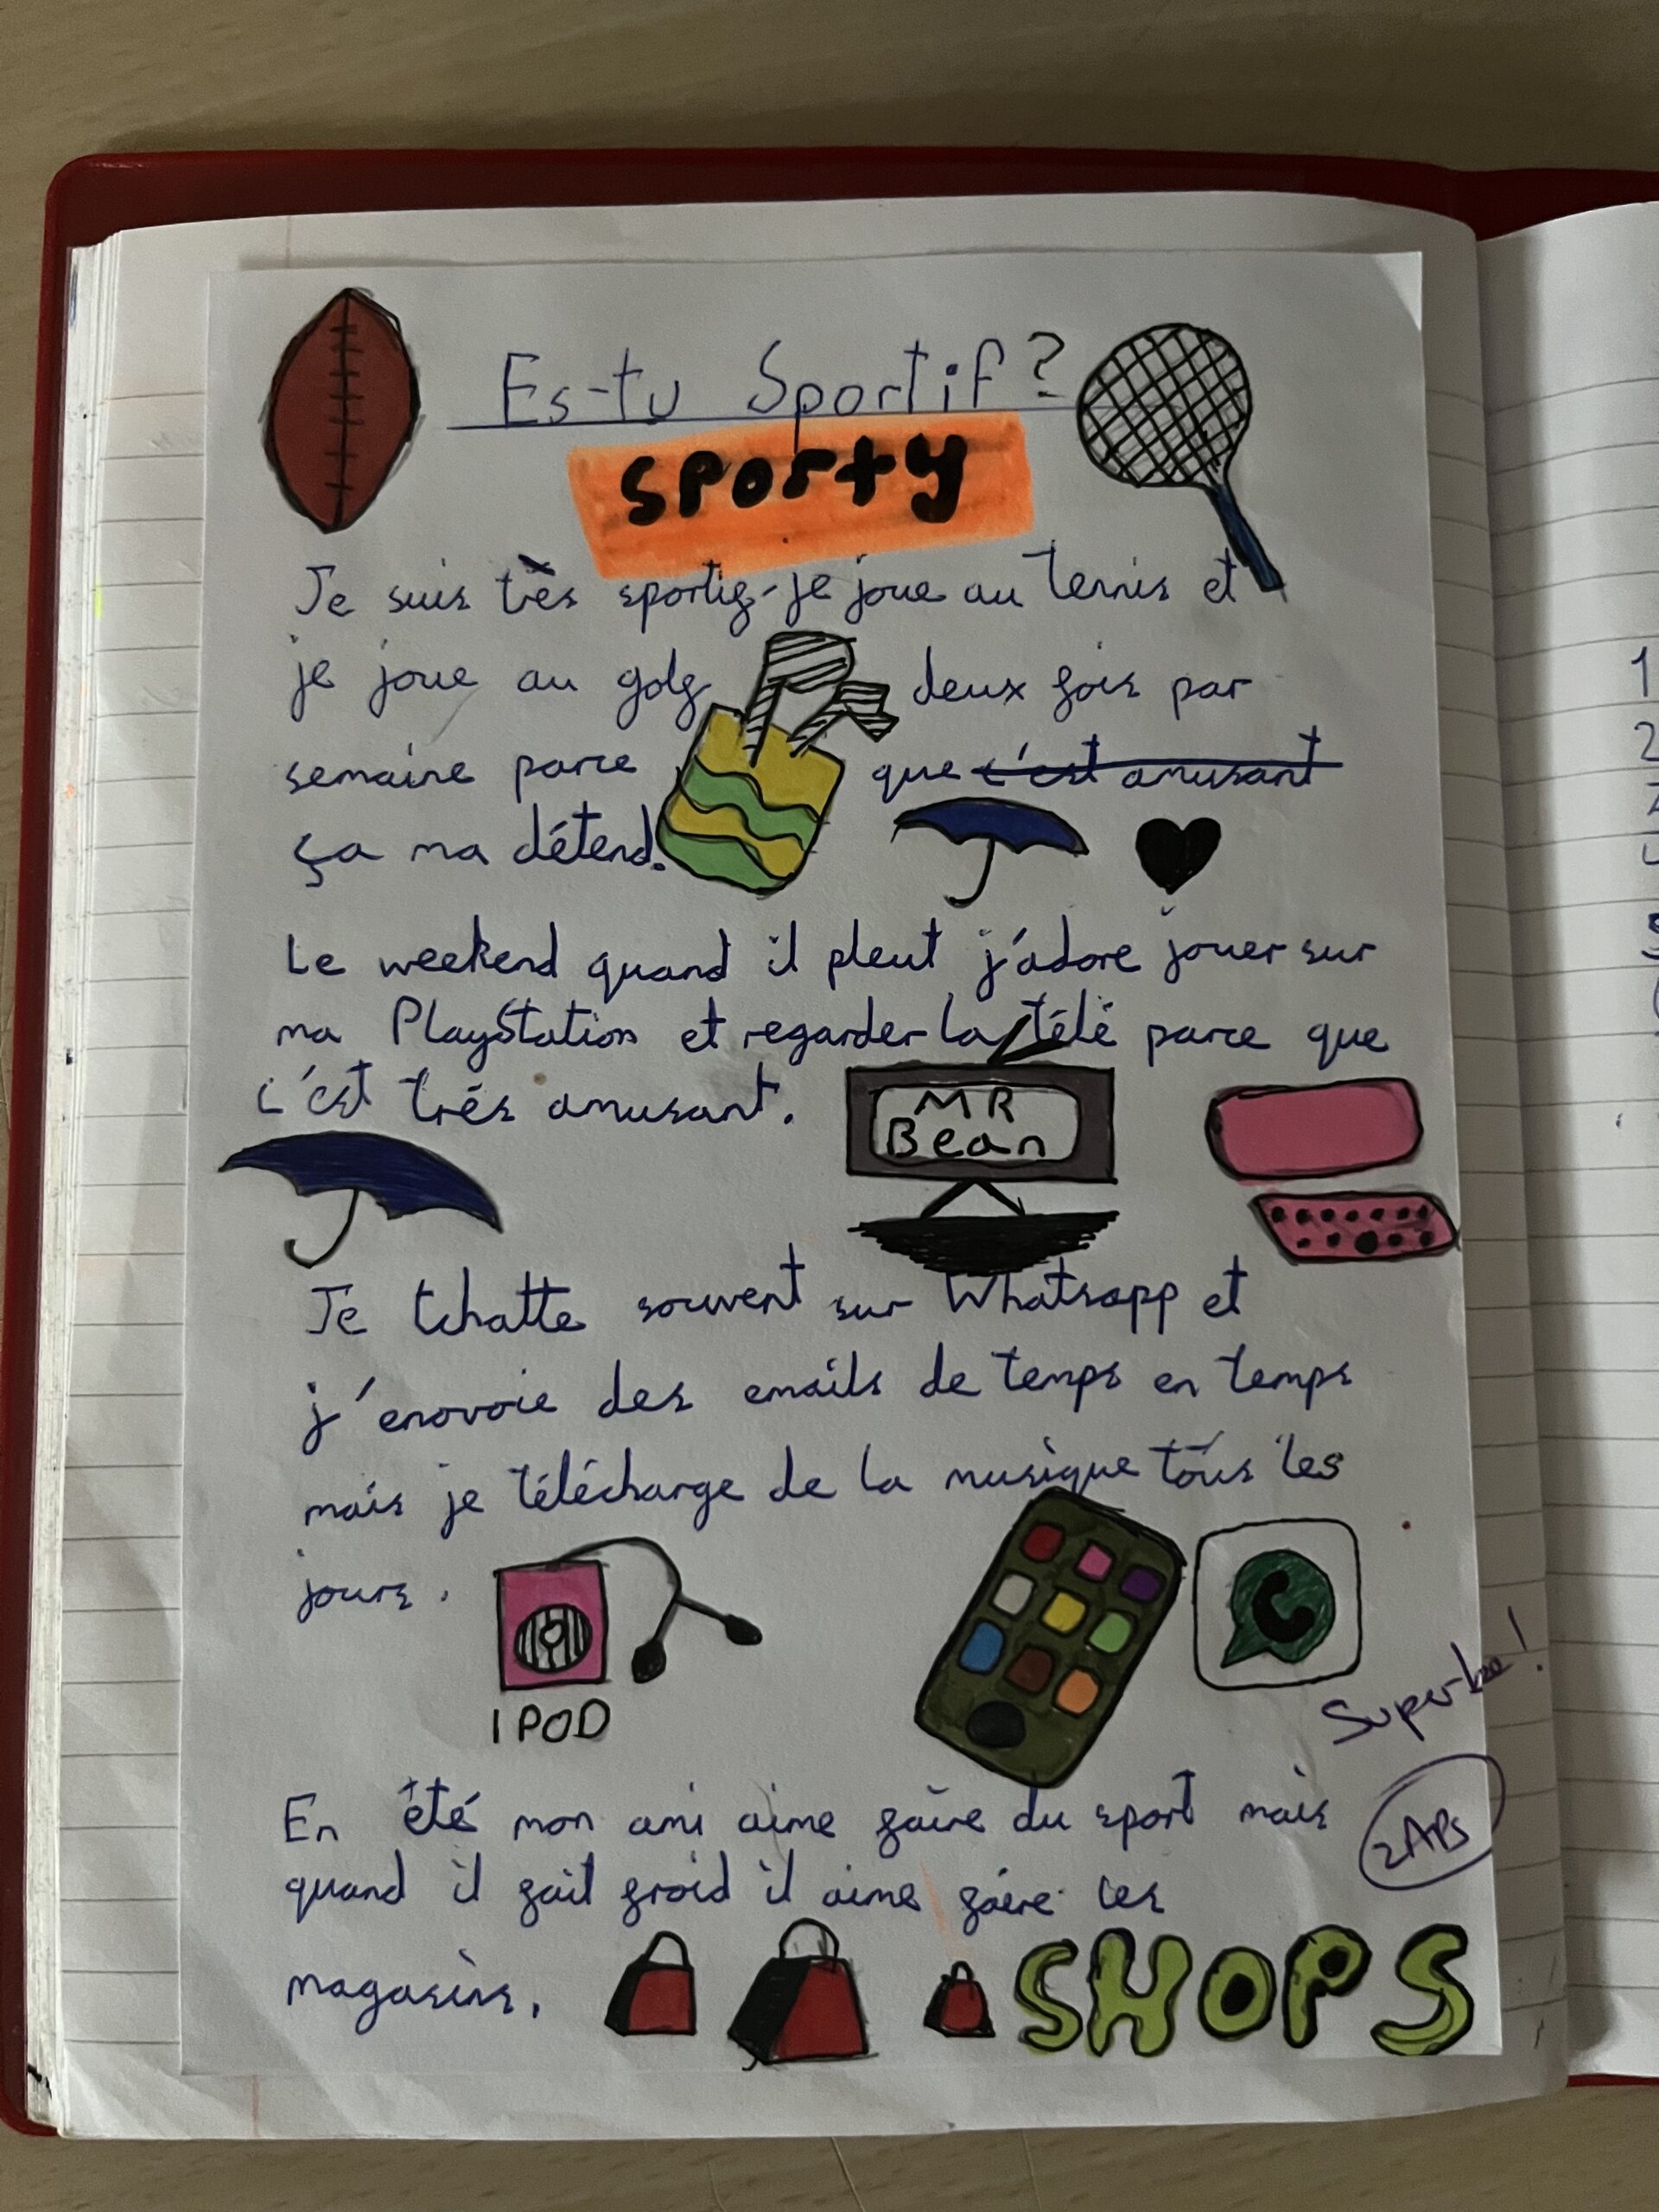 Es-tu Sportif?
sporty
Je suis très sportif - je joue au tennis et
je joue au golf deux fois par
semaine parce que c'est amusant
ça ma détend.
Le weekend quand il pleut j'adore jouer sur
ma PlayStation et regarder la télé parce que
c'est trés amusant.
MR
Bean
Je tchatte souvent sur Whatsapp et
j'enovoie des emails de temps en temps
mais je télécharge de la musique tous les
jours.
IPOD
Superbe!
2APs
En été mon ami aime faire du sport mais
quand il fait froid il aime faire les
magasins.
SHOPS
1
2